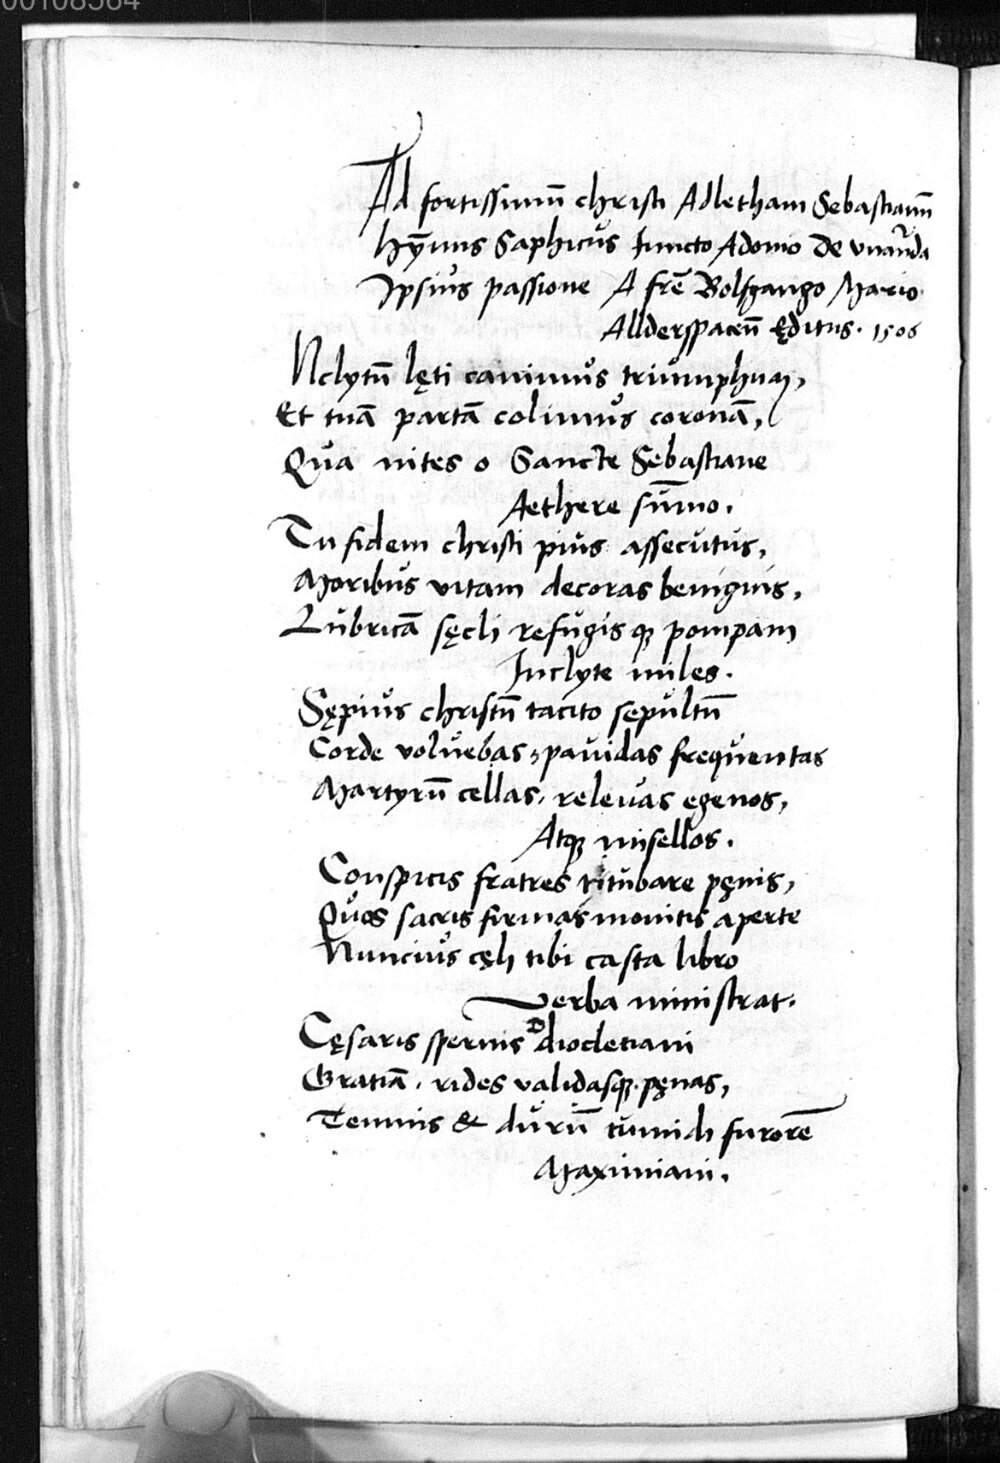 00108564
Ad fortissimū christi Adletham Sebastianū
hȳmnus Saphicus Iuncto Adonio De
Ipsius passione A frē Bolfgango Mario
Allderspacen̄ Ęditus. 1506
Nclytū lęti canimus triumphum,
Et tuā partā colimus coronā,
Qua nites o Sancte Sebastiane
Aethere sūmo.
Tu fidem christi pius assecutus,
Moribus vitam decoras benignis,
Lubricā sęcli refugisq; pompam
Inclyte miles.
Sępius christū tacito sepultū
Corde voluebas, pauidas frequentas
Martyrū cellas, releuas egenos,
Atq; misellos.
Conspicis fratres titubare pęnis,
Quos sacris firmas monitis aperte
Nuncius cęli tibi casta libro
Verba ministrat.
Cęsaris spernis Diocletiani
Gratiā, rides validasq; pęnas,
Temnis & durū tumidi furorē
Maximiani.